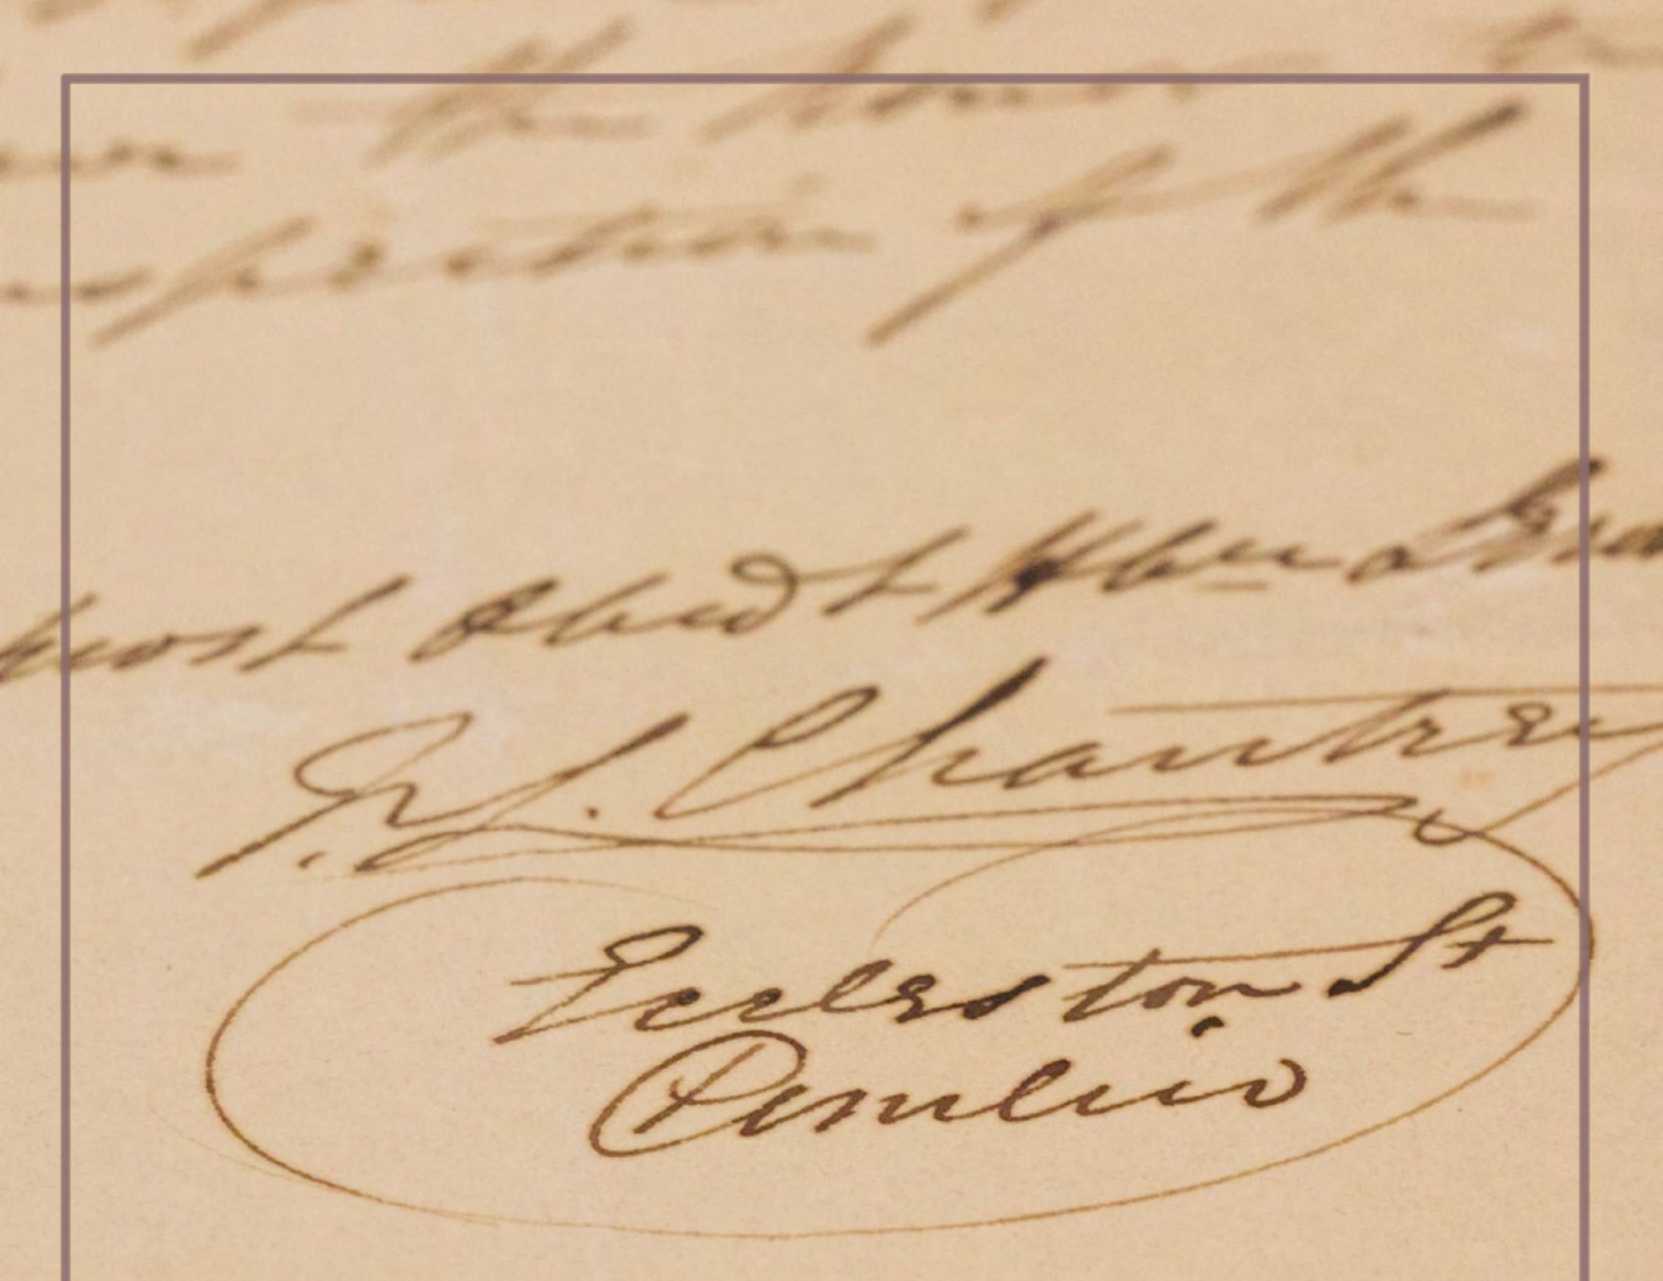 the honor
of the
most Obedt Hble Serva
F. L. Chantrey
Eccleston St
Pimlico